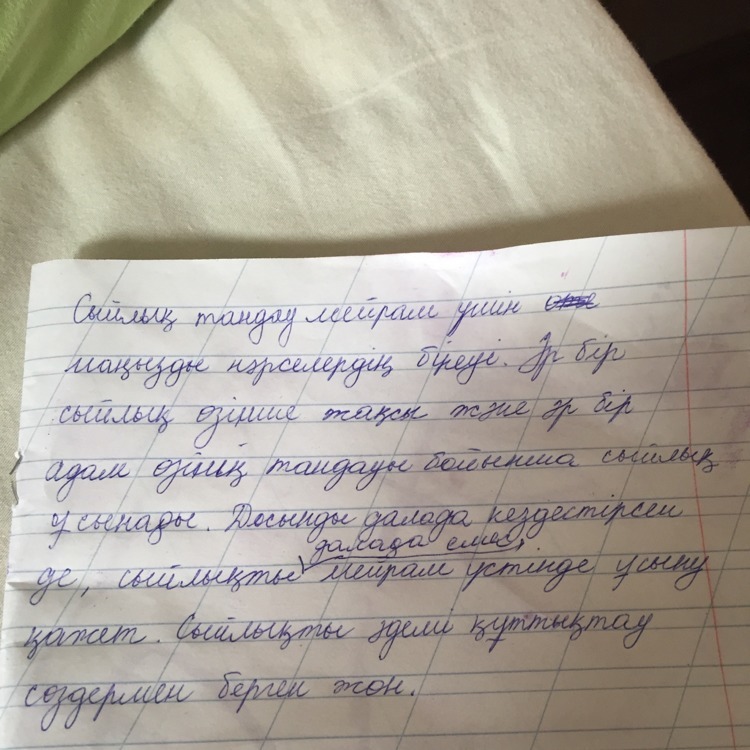 Сыйлық тандау мейрам үшін
маңызды нәрселердің біреуі. Әр бір
сыйлық өзінше жақсы және әр бір
адам өзінің тандауы бойынша сыйлық
ұсынады. Досынды далада кездестірсең
далада емес,
де, сыйлықты мейрам үстінде ұсыну
қажет. Сыйлықты әдемі құттықтау
сөздермен берген жөн.